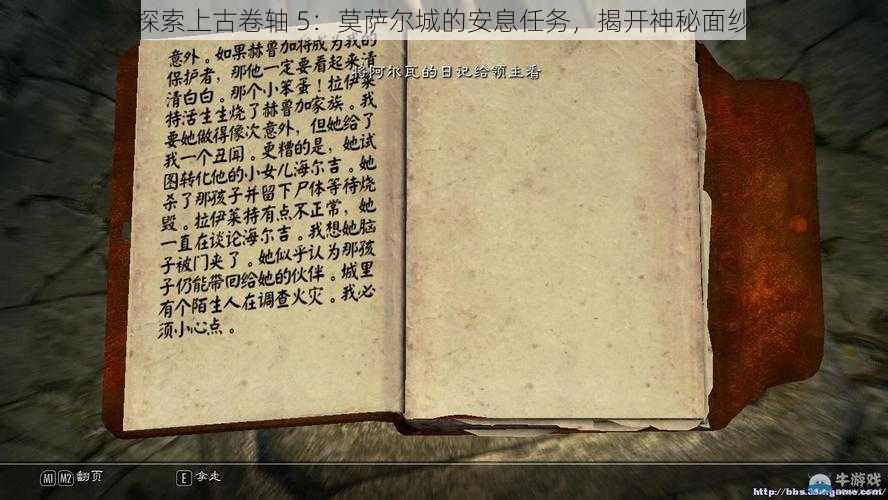 探索上古卷轴 5：莫萨尔城的安息任务，揭开神秘面纱
意外。如果赫鲁加将成为我的
将阿尔瓦的日记给领主看
保护者，那他一定要看起来清
清白白。那个小笨蛋！拉伊莱
特活生生烧了赫鲁加家族。我
要她做得像次意外，但她给了
我一个丑闻。更糟的是，她试
图转化他的小女儿海尔吉。她
杀了那孩子并留下尸体等待烧
毁。拉伊莱特有点不正常，她
一直在谈论海尔吉。我想她脑
子被门夹了。她似乎认为那孩
子仍能带回给她的伙伴。城里
有个陌生人在调查火灾。我必
须小心点。
M1 M2 翻页
E 拿走
牛游戏